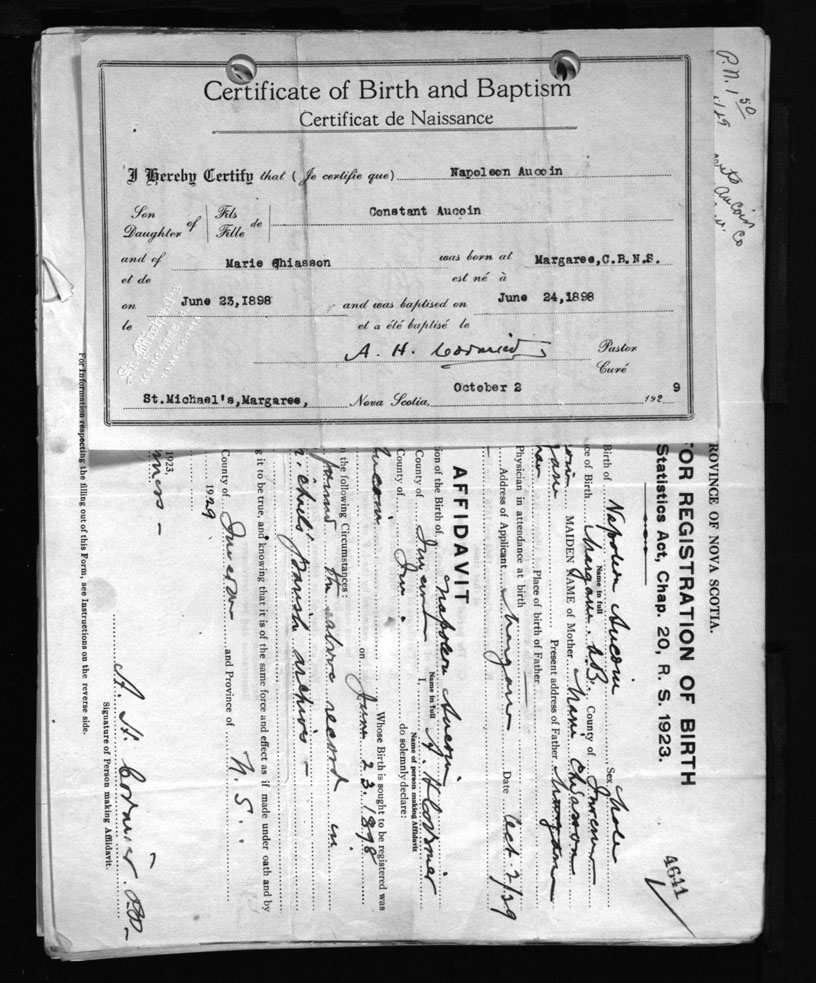 Certificate of Birth and Baptism
Certificat de Naissance
I Hereby Certify that (Je certifie que) Napoleon Aucoin
Son Fils
of de Constant Aucoin
Daughter Fille
and of Marie Chiasson was born at Margaree, C.B.N.S.
et de est né à
on June 23,1898 and was baptised on June 24,1898
le et a été baptisé le
A. H. Cormier Pastor
Curé
October 2 9
St.Michael's,Margaree, Nova Scotia, 192
P.N. 1 50
Aucoin
Co
ROVINCE OF NOVA SCOTIA.
OR REGISTRATION OF BIRTH
Statistics Act, Chap. 20, R. S. 1923.
4641
Birth of Napoleon Aucoin Sex Male
Name in full
ce of Birth Margaree, C.B., County of Inverness
MAIDEN NAME of Mother Marie Chiasson
Present address of Father Margaree
Place of birth of Father
Physician in attendance at birth
Address of Applicant Margaree Date Oct. 2/29
AFFIDAVIT
ion of the Birth of Napoleon Aucoin
Name in full
County of Inverness I, A. H. Cormier
Name of person making Affidavit
County of Inv. do solemnly declare:
Whose Birth is sought to be registered was
Aucoin on June 23. 1898
n the following Circumstances:
found the above record in
Michael's Parish archives -
g it to be true, and knowing that it is of the same force and effect as if made under oath and by
County of Inverness and Province of N. S.
1929
1923.
A. H. Cormier. P.P.
Signature of Person making Affidavit.
For Information respecting the filling out of this Form, see Instructions on the reverse side.